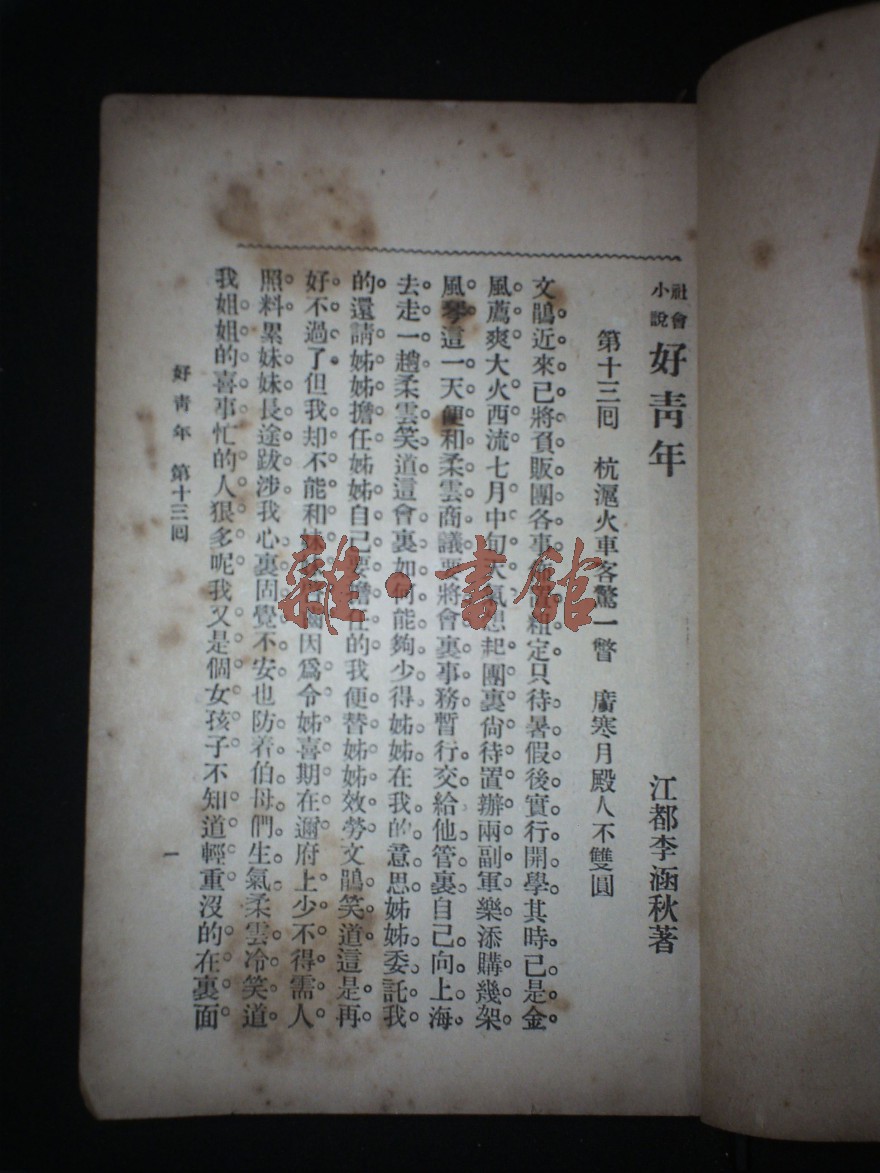 社會小說 好靑年 江都李涵秋著
第十三囘 杭滬火車客驚一瞥 廣寒月殿人不雙圓
文鵑近來已將負販團各事 粗定只待暑假後實行開學其時已是金
風薦爽大火西流七月中旬天氣想起團裏尙待置辦兩副軍樂添購幾架
風琴這一天便和柔雲商議要將會裏事務暫行交給他管裏自己向上海
去走一趟柔雲笑道這會裏如何能夠少得姊姊在我的意思姊姊委託我
的還請姊姊擔任姊姊自己要擔任的我便替姊姊效勞文鵑笑道這是再
好不過了但我却不能和妹妹 因爲令姊喜期在邇府上少不得需人
照料累妹妹長途跋涉我心裏固覺不安也防着伯母們生氣柔雲冷笑道
我姐姐的喜事忙的人狠多呢我又是個女孩子不知道輕重沒的在裏面
好靑年 第十三囘
一
雜·書館